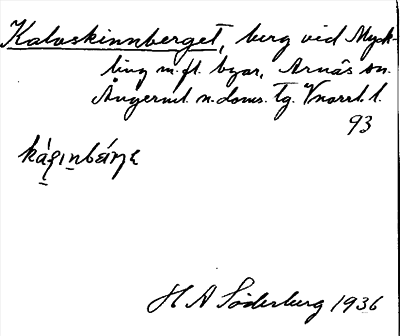 Kalvskinnberget, berg vid Myck-
ling m. fl. byar, Arnäs sn.
Ångerml. n. doms. Tg. Vnorrl. l.
93
H A Söderberg 1936